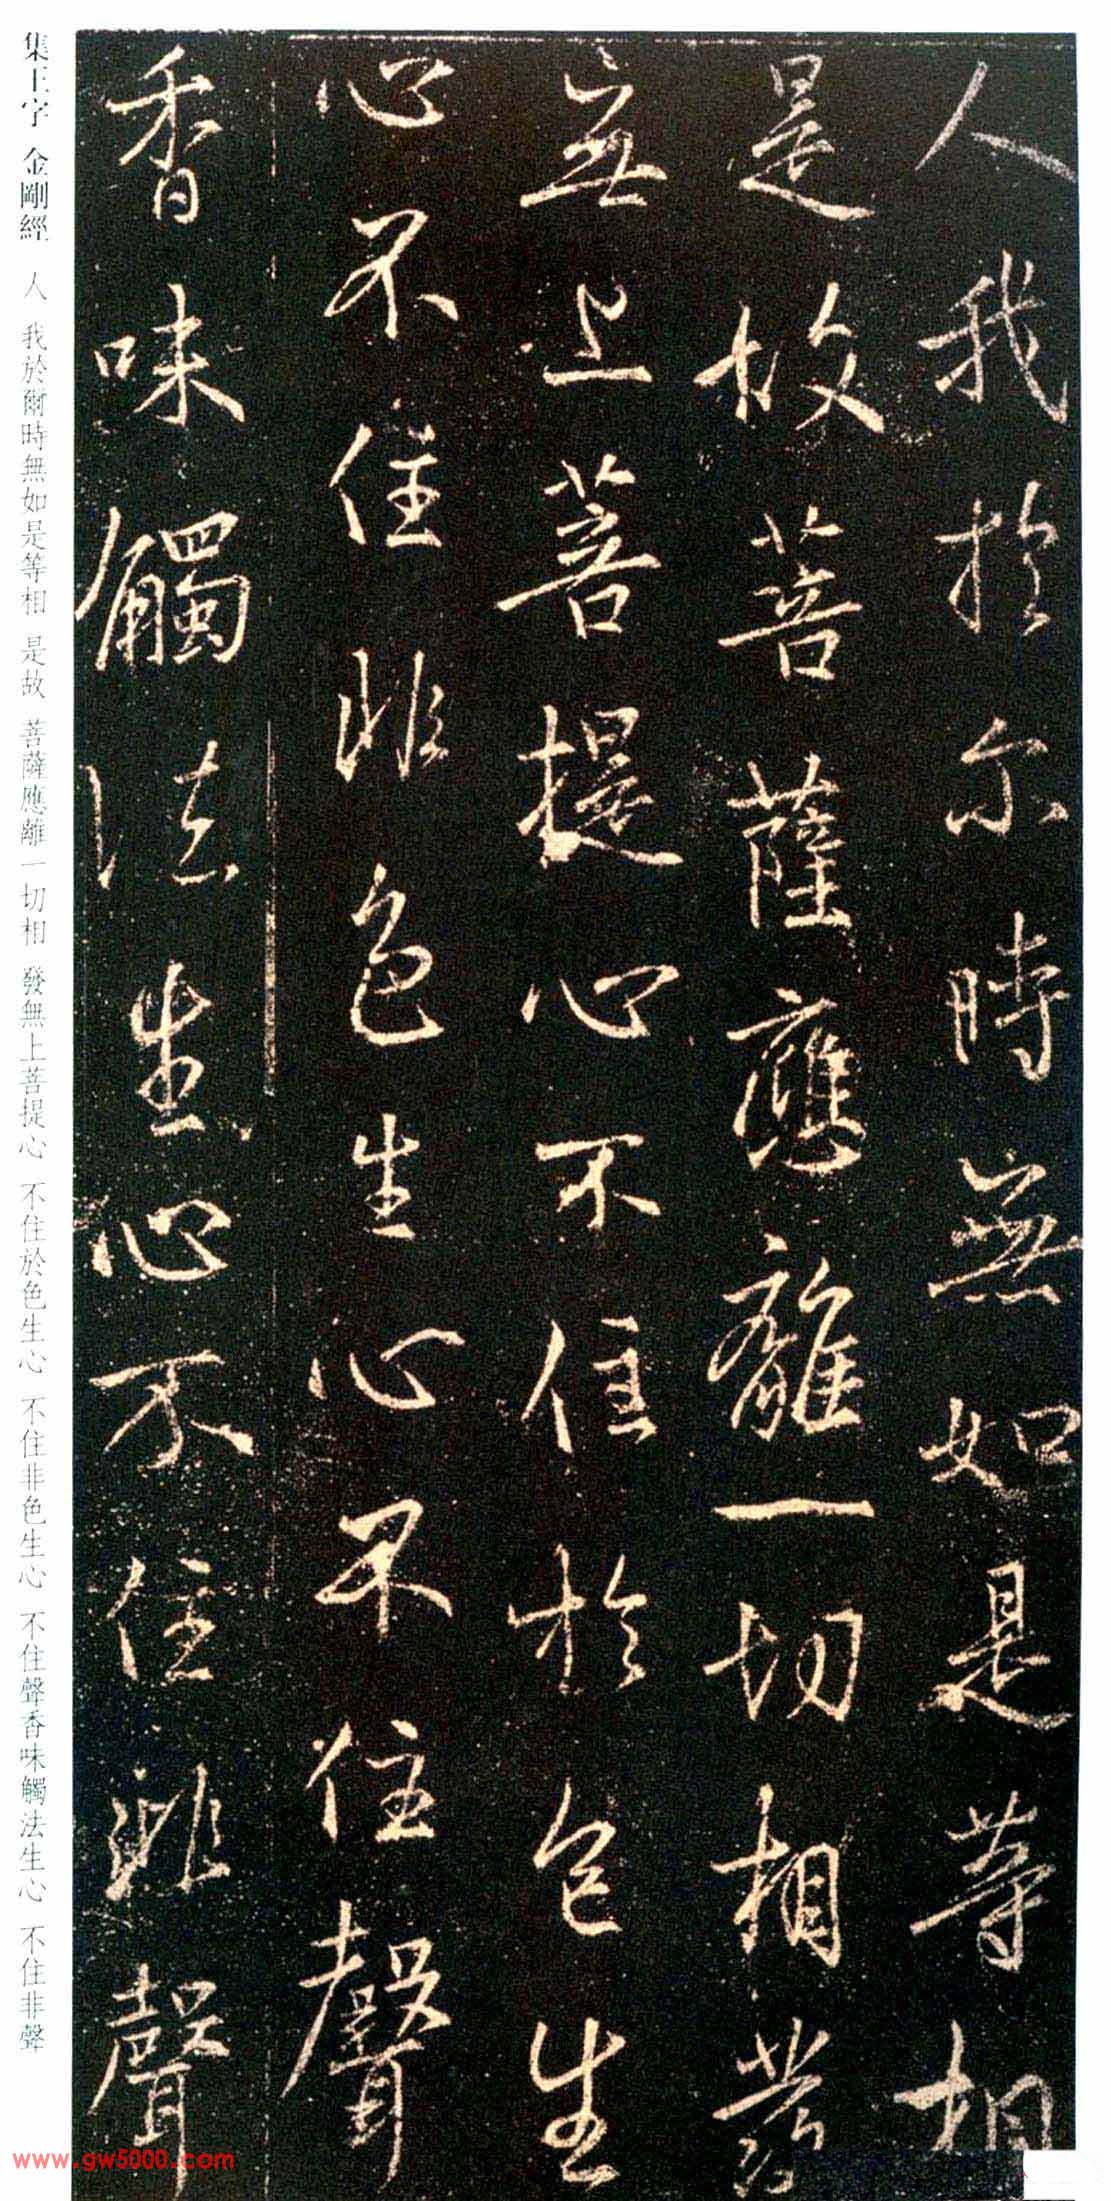 人我於尔時無如是等相
是故菩薩應離一切相發
無上菩提心不住於色生
心不住非色生心不住聲
香味觸法生心不住非聲
集王字 金剛經 人 我於爾時無如是等相 是故 菩薩應離一切相 發無上菩提心 不住於色生心 不住非色生心 不住聲香味觸法生心 不住非聲
www.gw5000.com